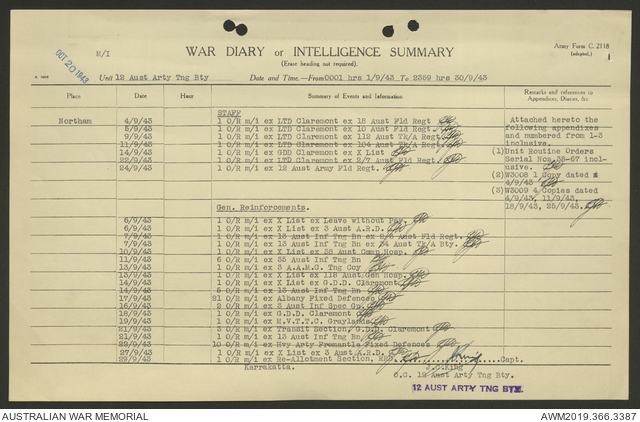 Army Form C. 2118
(adapted.)
OCT 20 1943
M/I
WAR DIARY or INTELLIGENCE SUMMARY
(Erase heading not required).
Unit 12 Aust Arty Tng Bty Date and Time.—From 0001 hrs 1/9/43 To 2359 hrs 30/9/43
Place Date Hour Summary of Events and Information Remarks and references to Appendices, Diaries, &c.
STAFF
Northam 4/9/43 1 O/R m/i ex LTD Claremont ex 18 Aust Fld Regt
5/9/43 1 O/R m/i ex LTD Claremont ex 10 Aust Fld Regt
9/9/43 1 O/R m/i ex LTD Claremont ex 112 Aust Tk/A Regt
11/9/43 1 O/R m/i ex LTD Claremont ex 104 Aust Tk/A Regt
14/9/43 1 O/R m/i ex GDD Claremont ex X List
22/9/43 1 O/R m/i ex LTD Claremont ex 2/7 Aust Fld Regt
24/9/43 1 O/R m/i ex 12 Aust Army Fld Regt.
Attached hereto the
following appendixes
and numbered from 1-3
inclusive.
(1) Unit Routine Orders
Serial Nos. 55-67 incl-
usive.
(2) W3008 1 Copy dated
4/9/43
(3) W3009 4 Copies dated
4/9/43, 11/9/43,
18/9/43, 25/9/43.
Gen. Reinforcements.
6/9/43 1 O/R m/i ex X List ex Leave without Pay.
6/9/43 1 O/R m/i ex X List ex 3 Aust A.R.D.
7/9/43 1 O/R m/i ex 13 Aust Inf Tng Bn ex Aust Fld Regt.
7/9/43 1 O/R m/i ex 13 Aust Inf Tng Bn ex Aust Tk/A Bty.
10/9/43 1 O/R m/i ex X List ex Aust Camp Hosp.
11/9/43 6 O/R m/i ex 35 Aust Inf Tng Bn
13/9/43 1 O/R m/i ex 3 A.A.M.C. Tng Coy
13/9/43 1 O/R m/i ex X List ex 118 Aust Gen Hosp
14/9/43 1 O/R m/i ex X List ex G.D.D. Claremont
14/9/43 5 O/R m/i ex 13 Aust Inf Tng Bn
17/9/43 21 O/R m/i ex Albany Fixed Defences
16/9/43 2 O/R m/i ex 3 Aust Inf Spec Gp
18/9/43 1 O/R m/i ex G.D.D. Claremont
19/9/43 1 O/R m/i ex H.V.T.T.C. Graylands
21/9/43 3 O/R m/i ex Transit Section, G.D.D. Claremont
21/9/43 1 O/R m/i ex 13 Aust Inf Tng Bn
22/9/43 10 O/R m/i ex Hvy Arty Fremantle Fixed Defences
27/9/43 1 O/R m/i ex X List ex 3 Aust A.R.D.
29/9/43 1 O/R m/i ex Re-Allotment Section, Capt.
Karrakatta. J. King
O.C. 12 Aust Arty Tng Bty.
12 AUST ARTY TNG BTY.
AUSTRALIAN WAR MEMORIAL AWM2019.366.3387